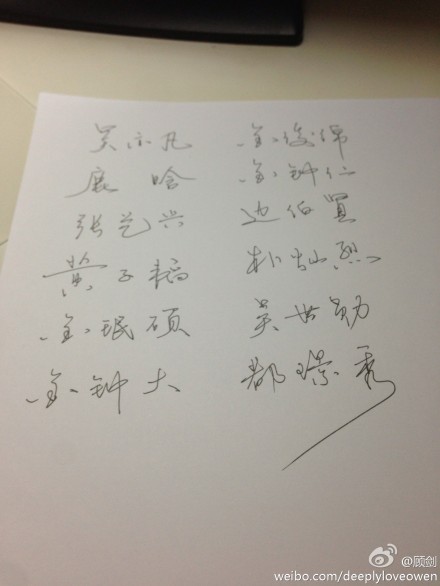 吴亦凡 金俊绵
鹿晗 金钟仁
张艺兴 边伯贤
黄子韬 朴灿烈
金珉硕 吴世勋
金钟大 都璟秀
@顾剑
weibo.com/deeplyloveowen